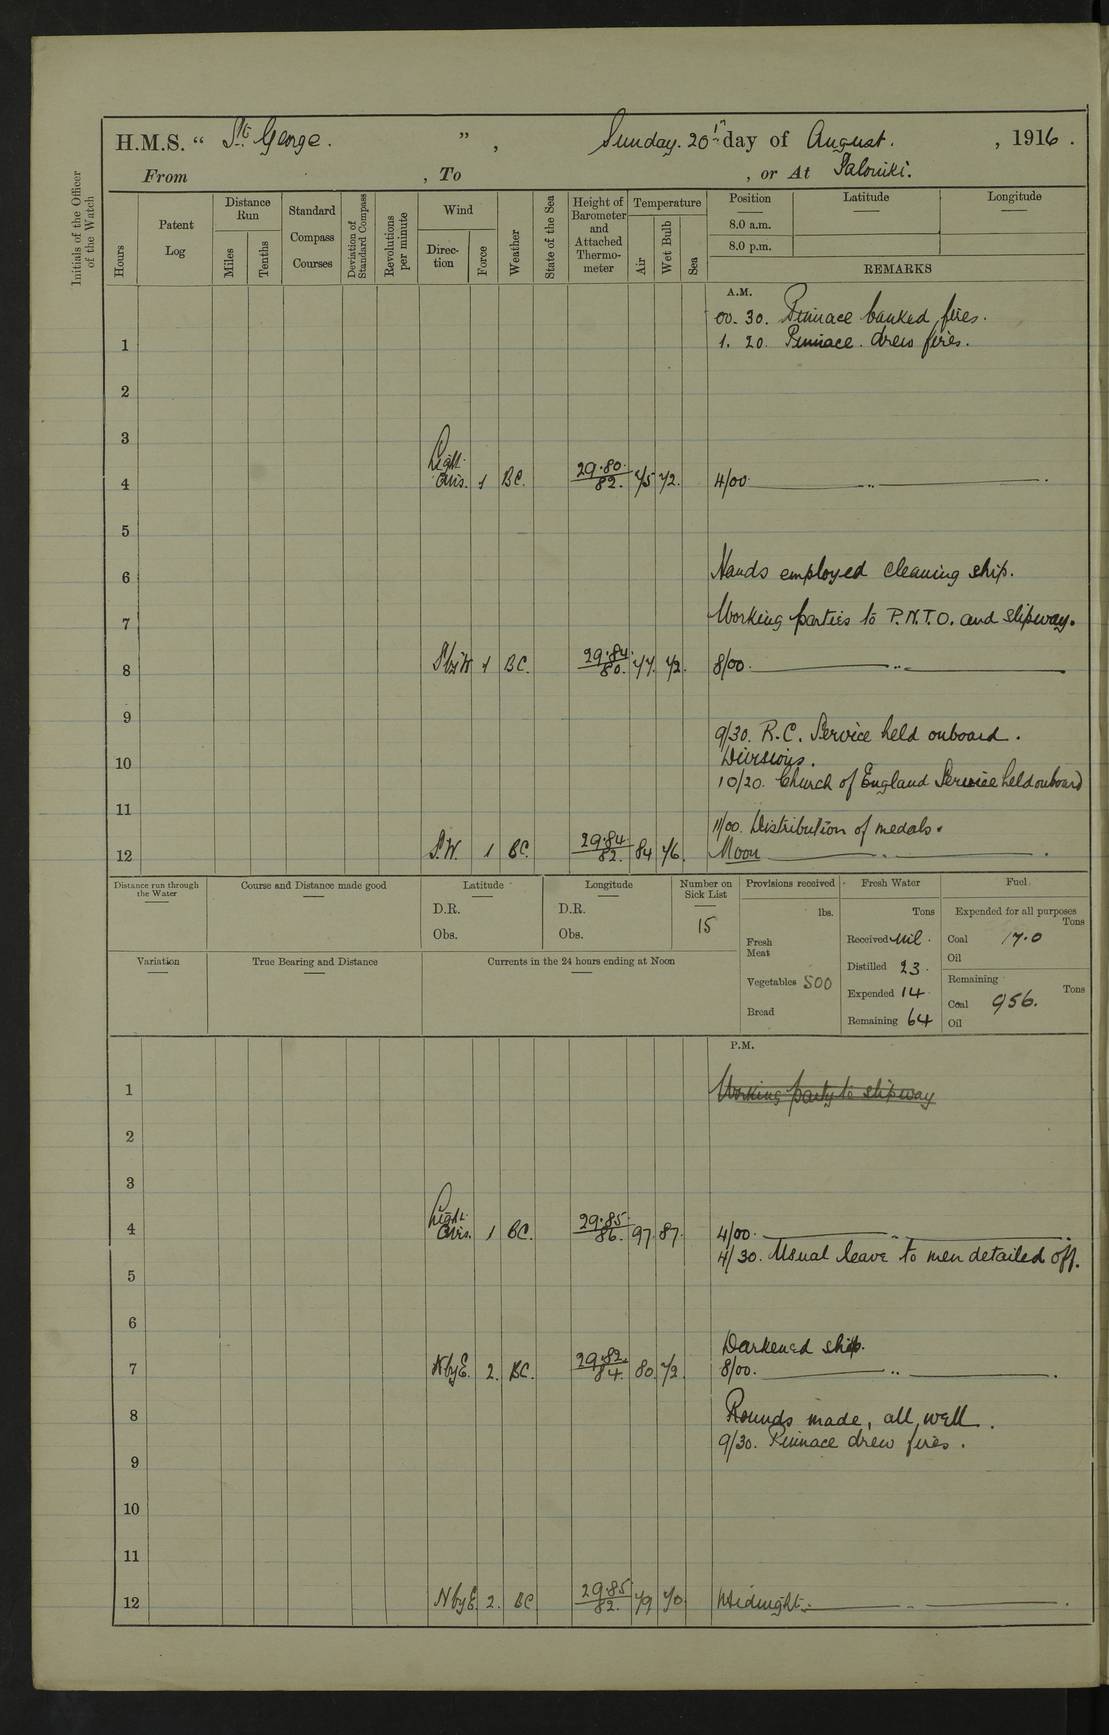 H.M.S. “ St. George. ” , Sunday. 20th day of August. , 1916 .
From , To , or At Saloniki.
Initials of the Officer of the Watch
Hours
Patent Log
Distance Run
Miles
Tenths
Standard Compass Courses
Deviation of Standard Compass
Revolutions per minute
Wind
Direc-tion
Force
Weather
State of the Sea
Height of Barometer and Attached Thermo-meter
Temperature
Air
Wet Bulb
Sea
Position
8.0 a.m.
8.0 p.m.
Latitude
Longitude
REMARKS
A.M.
00. 30. Pinnace banked fires.
1 1. 20. Pinnace. drew fires.
2
3
4 Light Airs. 1 BC. 29.80. 82. 75 72. 4/00.
5
6 Hands employed cleaning ship.
7 Working parties to P.N.T.O. and slipway.
8 S'by W 1 BC. 29.84. 80. 77. 72. 8/00.
9
9/30. R.C. Service held onboard.
10 Divisions.
10/20. Church of England Service held onboard
11
11/00. Distribution of medals.
12 S.W. 1 BC. 29.84. 82. 84 76. Noon
Distance run through the Water
Course and Distance made good
Latitude
D.R.
Obs.
Longitude
D.R.
Obs.
Number on Sick List
15
Provisions received
lbs.
Fresh Meat
Vegetables 500
Bread
Fresh Water
Tons
Received nil.
Distilled 23.
Expended 14
Remaining 64
Fuel
Expended for all purposes
Tons
Coal 17.0
Oil
Remaining
Tons
Coal 956.
Oil
Variation
True Bearing and Distance
Currents in the 24 hours ending at Noon
P.M.
1 Working party to slipway
2
3
4 Light Airs. 1 BC. 29.85. 86. 97. 87. 4/00.
4/30. Usual leave to men detailed off.
5
6
Darkened ship.
7 N by E. 2. BC. 29.82. 84. 80. 72. 8/00.
8 Rounds made, all well.
9/30. Pinnace drew fires.
9
10
11
12 N by E. 2. BC 29.85. 82. 79 70. Midnight.